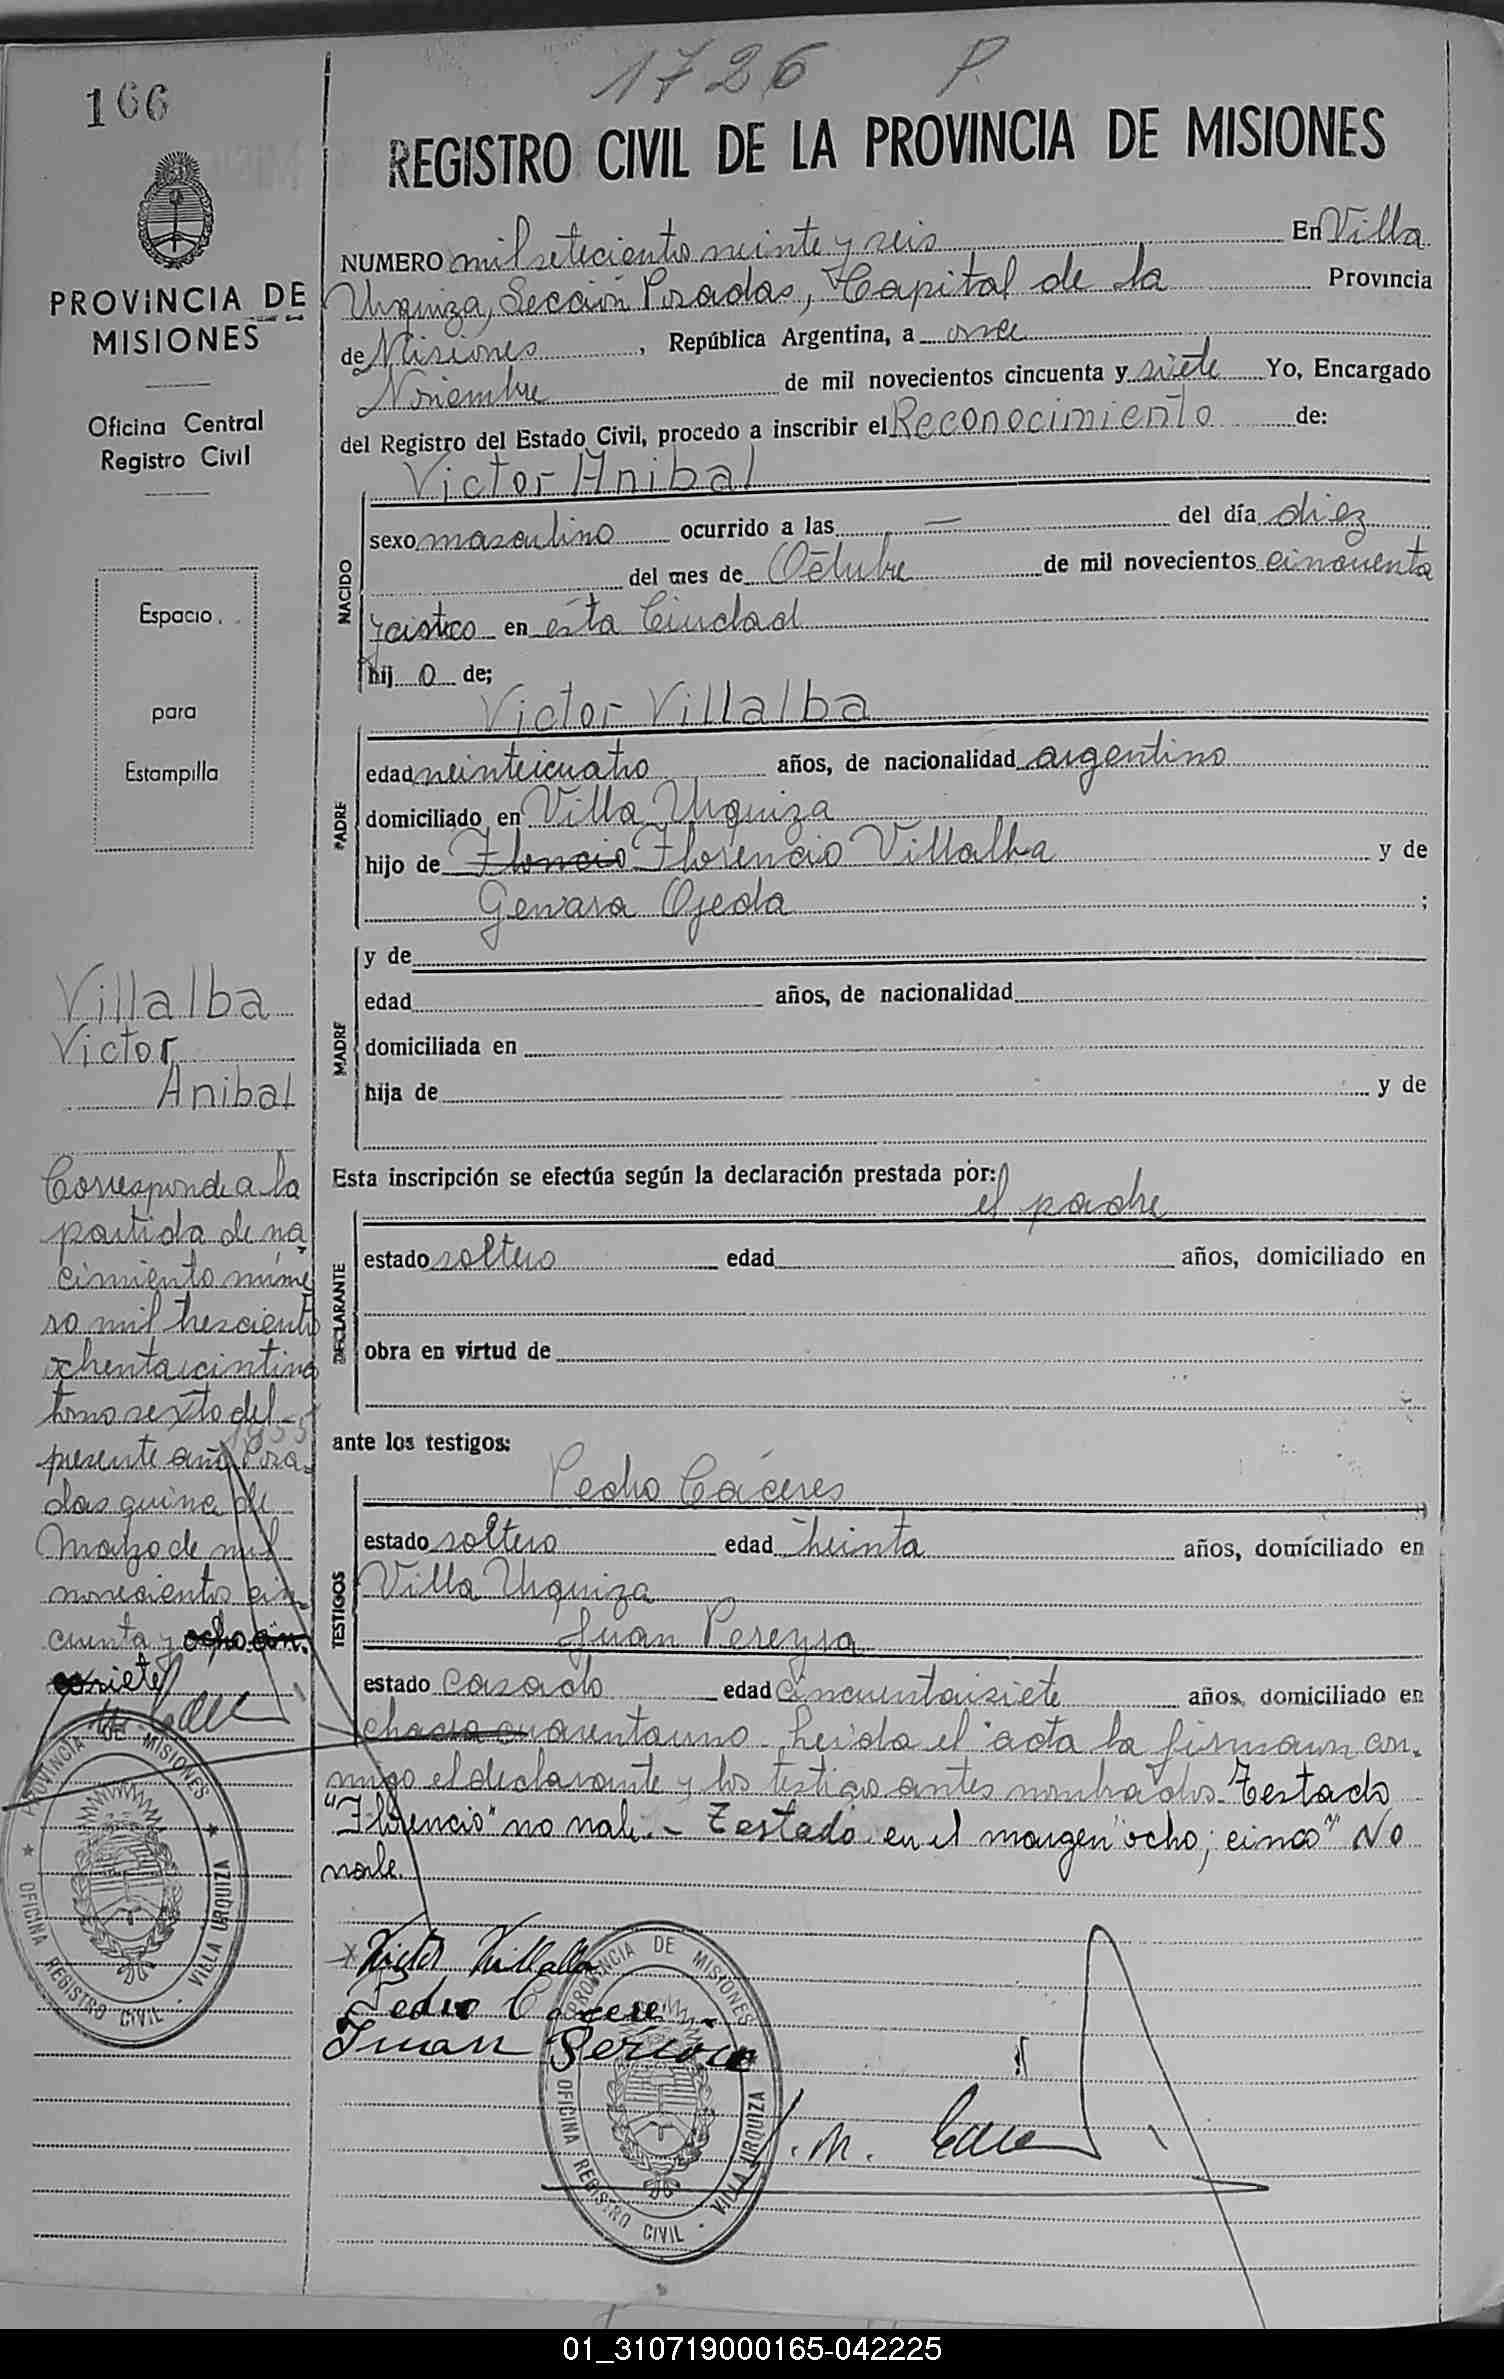 1726 P.
166
REGISTRO CIVIL DE LA PROVINCIA DE MISIONES
PROVINCIA DE
MISIONES
Oficina Central
Registro Civil
Espacio
para
Estampilla
NUMERO mil setecientos veinte y seis En Villa
Urquiza, Sección Posadas, Capital de la Provincia
de Misiones, República Argentina, a once
Noviembre de mil novecientos cincuenta y siete Yo, Encargado
del Registro del Estado Civil, procedo a inscribir el Reconocimiento de:
Victor Anibal
NACIDO
sexo masculino ocurrido a las — del día diez
del mes de Octubre de mil novecientos cincuenta
en esta Ciudad
hij o de;
Victor Villalba
PADRE
edad veinteicuatro años, de nacionalidad argentino
domiciliado en Villa Urquiza
hijo de Florencio Villalba y de
Genara Ojeda ;
MADRE
y de
edad años, de nacionalidad
domiciliada en
hija de y de
Esta inscripción se efectúa según la declaración prestada por:
el padre
DECLARANTE
estado soltero edad años, domiciliado en
obra en virtud de
ante los testigos:
Pedro Cáceres
TESTIGOS
estado soltero edad treinta años, domiciliado en
Villa Urquiza
Juan Pereyra
estado casado edad cincuentaisiete años, domiciliado en
chacra cuarentauno. Leída el acta la firmaron con-
migo el declarante y los testigos antes nombrados. Testado
"Florencio" no vale. - Testado en el margen "ocho; cinco" No
vale.
Villalba
Victor
Anibal
Corresponde a la
partida de na-
cimiento núme
ro mil trescientos
ochentaicinco
tomo sexto del
1955
presente año Posa-
das quince de
Marzo de mil
novecientos cin-
cuenta y ocho cin-
co siete
PROVINCIA DE MISIONES
OFICINA REGISTRO CIVIL - VILLA URQUIZA
Victor Villalba
Pedro Cacere
Juan
PROVINCIA DE MISIONES
OFICINA REGISTRO CIVIL - VILLA URQUIZA
01_310719000165-042225